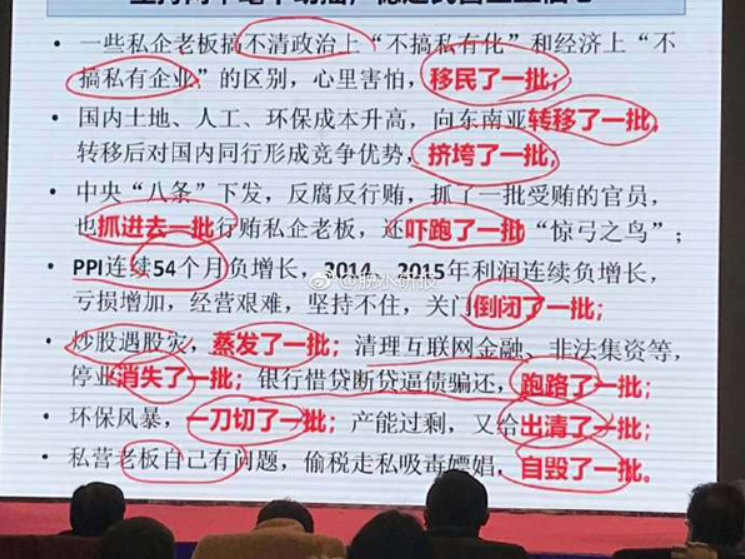 • 一些私企老板搞不清政治上“不搞私有化”和经济上“不
搞私有企业”的区别，心里害怕，移民了一批；
• 国内土地、人工、环保成本升高，向东南亚转移了一批，
转移后对国内同行形成竞争优势，挤垮了一批；
• 中央“八条”下发，反腐反行贿，抓了一批受贿的官员，
也抓进去一批行贿私企老板，还吓跑了一批“惊弓之鸟”；
• PPI连续54个月负增长，2014、2015年利润连续负增长，
亏损增加，经营艰难，坚持不住，关门倒闭了一批；
• 炒股遇股灾，蒸发了一批；清理互联网金融、非法集资等，
停业消失了一批；银行借贷断贷逼债骗还，跑路了一批；
• 环保风暴，一刀切了一批；产能过剩，又给出清了一批；
• 私营老板自己有问题，偷税走私吸毒嫖娼，自毁了一批。